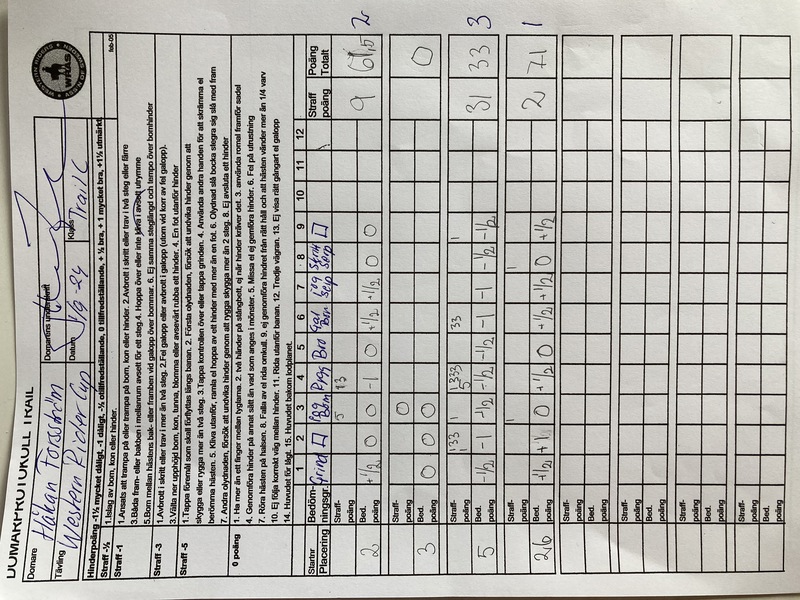 DOMARPROTOKOLL TRAIL
Domare
Håkan Forsström
Domarens underskrift
Tävling
Western Rider Cup
Datum
Klass
Trail C
WRAS
feb-05
Hinderpoäng -1½ mycket dåligt, -1 dåligt, -½ otillfredsställande, 0 tillfredsställande, + ½ bra, + 1 mycket bra, +1½ utmärkt
Straff -½
1.Islag av bom, kon eller hinder.
Straff -1
1.Ansats att trampa på eller trampa på bom, kon eller hinder. 2.Avbrott i skritt eller trav i två steg eller färre
3.Båda fram- eller bakben i mellanrum avsett för ett steg.4. Hoppa över eller inte kliva i avsett utrymme
5.Bom mellan hästens bak- eller framben vid galopp över bommar. 6. Ej samma steglängd och tempo över bomhinder
Straff -3
1.Avbrott i skritt eller trav i mer än två steg. 2.Fel galopp eller avbrott i galopp (utom vid korr av fel galopp).
3.Välta ner upphöjd bom, kon, tunna, blomma eller avsevärt rubba ett hinder. 4. En fot utanför hinder
Straff -5
1.Tappa föremål som skall förflyttas längs banan. 2. Första olydnaden, försök att undvika hinder genom att
skygga eller rygga mer än två steg. 3.Tappa kontrollen över eller tappa grinden. 4. Använda andra handen för att skrämma el
berömma hästen. 5. Kliva utanför, ramla el hoppa av ett hinder med mer än en fot. 6. Olydnad slå bocka stegra sig slå med fram
7. Andra olydnaden, försök att undvika hinder genom att rygga skygga mer än 2 steg. 8. Ej avsluta ett hinder
0 poäng
1. Ha mer än ett finger mellan tyglarna. 2. två händer på stångbett, ej när hinder kräver det. 3. använda romal framför sadel
4. Genomföra hinder på annat sätt än vad som anges i mönster. 5. Missa el ej gemföra hinder. 6. Fel på utrustning
7. Röra hästen på halsen. 8. Falla av el rida omkull. 9. ej genomföra hindret från rätt håll och att hästen vänder mer än 1/4 varv
10. Ej följa korrekt väg mellan hinder. 11. Rida utanför banan. 12. Tredje vägran. 13. Ej visa rätt gångart el galopp
14. Huvudet för lågt. 15. Huvudet bakom lodplanet.
Startnr
Placering
Bedöm-
ningsgr.
1 2 3 4 5 6 7 8 9 10 11 12
Grind
Straff
poäng
Poäng
Totalt
Straff-
poäng
5 13
2
Bed.
poäng
+½ 0 0 -1 0 +½ +½ 0 0
9 61,5 2
Straff-
poäng
0
3
Bed.
poäng
0 0 0
0
Straff-
poäng
133 1 1333 5 33 1
5
Bed.
poäng
-½ -1 -½ -½ -½ -1 -1 -½ -½
31 33 3
Straff-
poäng
1 1
26
Bed.
poäng
+½ +1 0 +½ 0 +½ +½ 0 +½
2 71 1
Straff-
poäng
Bed.
poäng
Straff-
poäng
Bed.
poäng
Straff-
poäng
Bed.
poäng
Straff-
poäng
Bed.
poäng